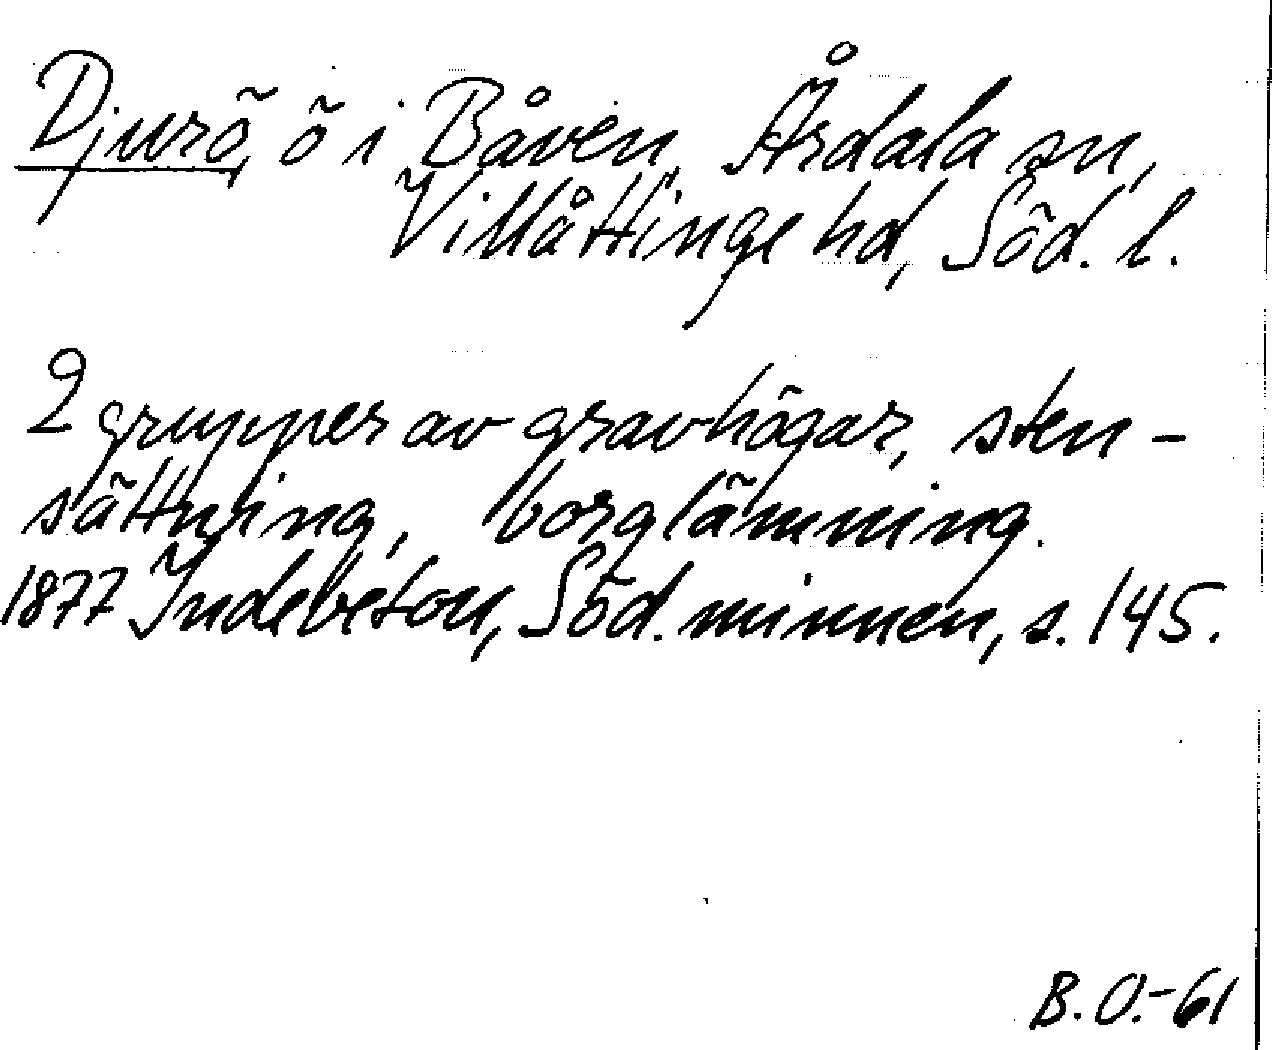 Djurö, ö i Båven, Årdala sn,
Villåttinge hd, Söd. l.
2 grupper av gravhögar, sten-
sättning, borglämning.
1877 Indebetou, Söd. minnen, s. 145.
B.O.-61